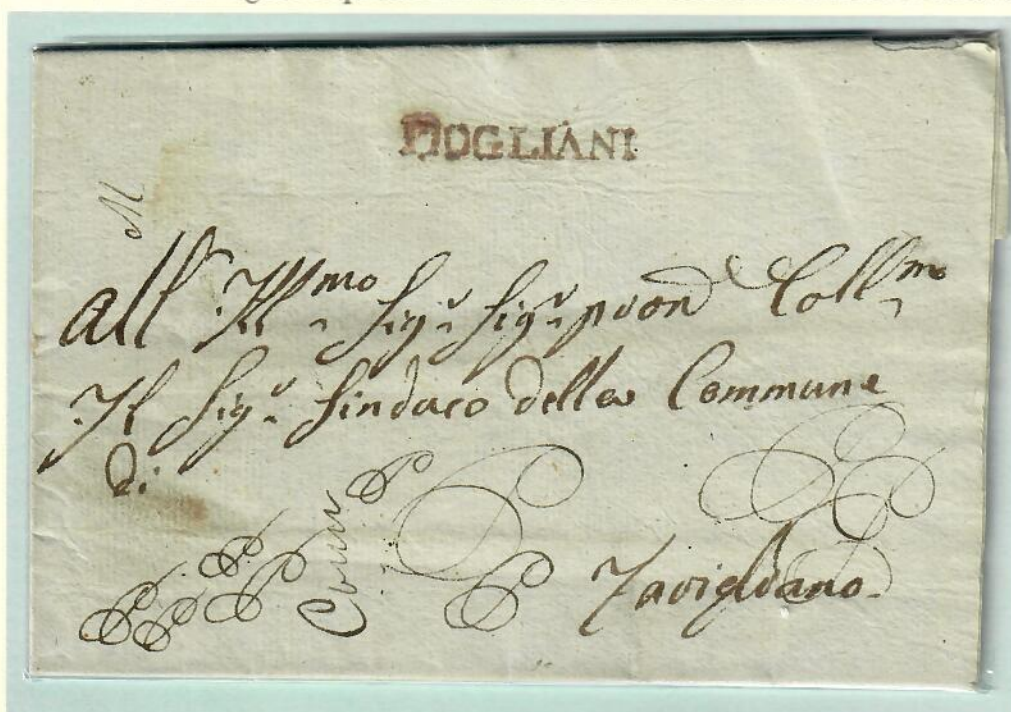 DOGLIANI
M
All' Ill.mo Sig.r Sig.r pron Coll.mo
Il Sig.r Sindaco della Commune
di
Tavigliano.